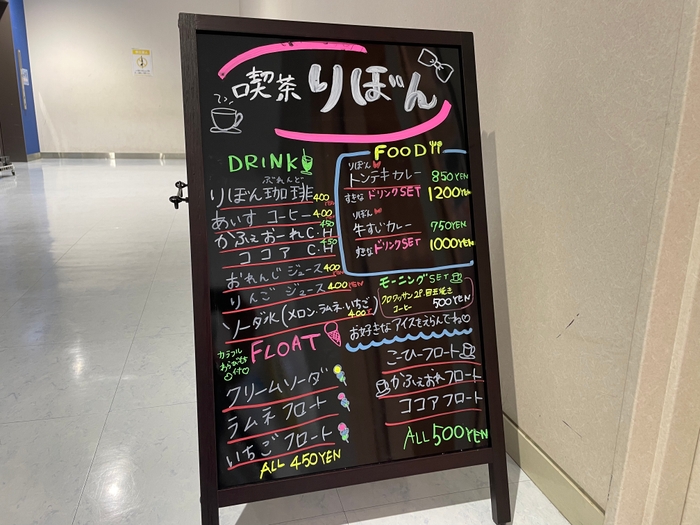 喫茶 りぼん
DRINK
ぶれんど
りぼん珈琲 400
あいす コーヒー 400
かふぇおーれ C.H 450
ココア C.H 450
おれんじジュース 400
りんごジュース 400YEN
ソーダ水(メロン・ラムネ・いちご) 400
FOOD
りぼん
トンテキカレー 850YEN
すきなドリンクSET 1200YEN
りぼん
牛すじカレー 750YEN
すきなドリンクSET 1000YEN
モーニングSET
クロワッサン2P・目玉焼き
コーヒー 500YEN
お好きなアイスをえらんでね♡
カラフル
FLOAT
クリームソーダ
ラムネフロート
いちごフロート
ALL 450YEN
こーひーフロート
かふぇおれフロート
ココアフロート
ALL 500YEN